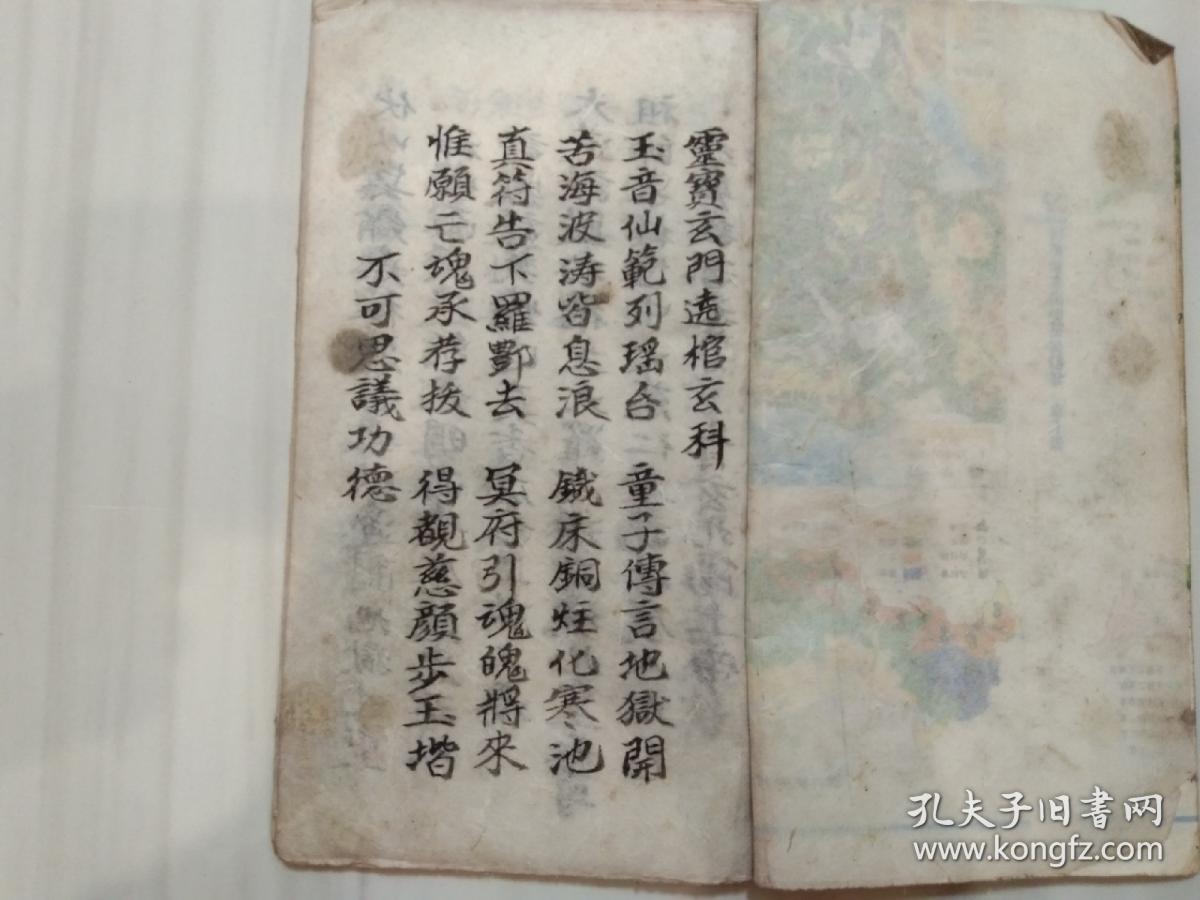 靈寶玄門遶棺玄科
玉音仙範列瑶台　童子傳言地獄開
苦海波涛皆息浪　鐵床銅炷化寒池
真符告下羅酆去　冥府引魂魄將來
惟願亡魂承荐拔　得覩慈顔步玉堦
不可思議功德
孔夫子旧书网
www.kongfz.com